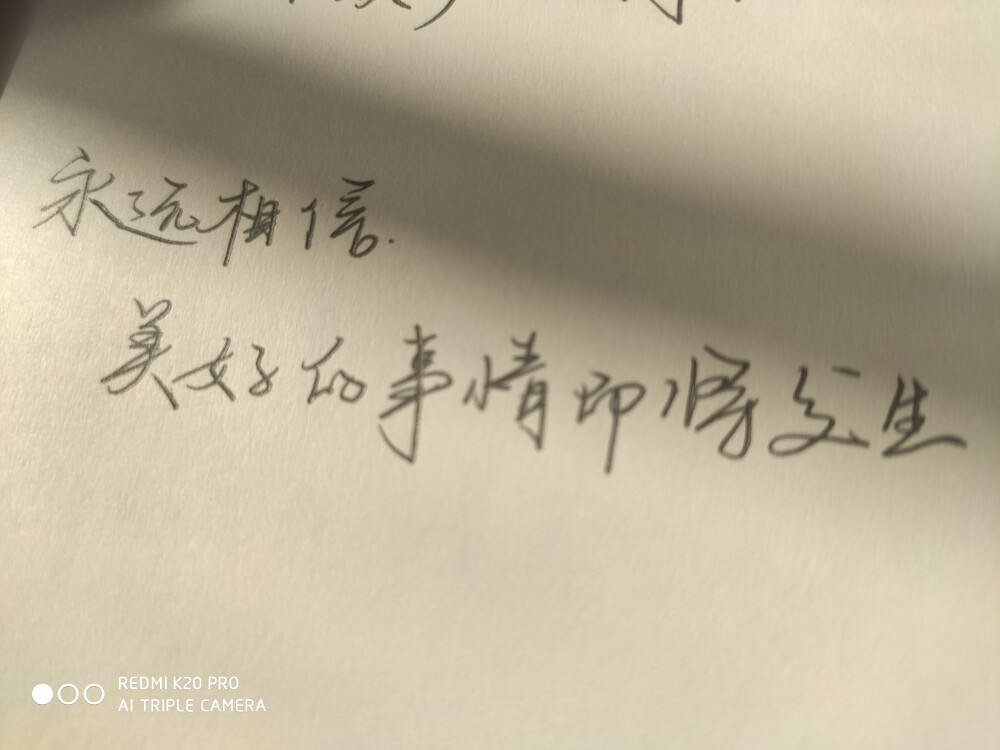 永远相信.
美好的事情即将发生
REDMI K20 PRO
AI TRIPLE CAMERA